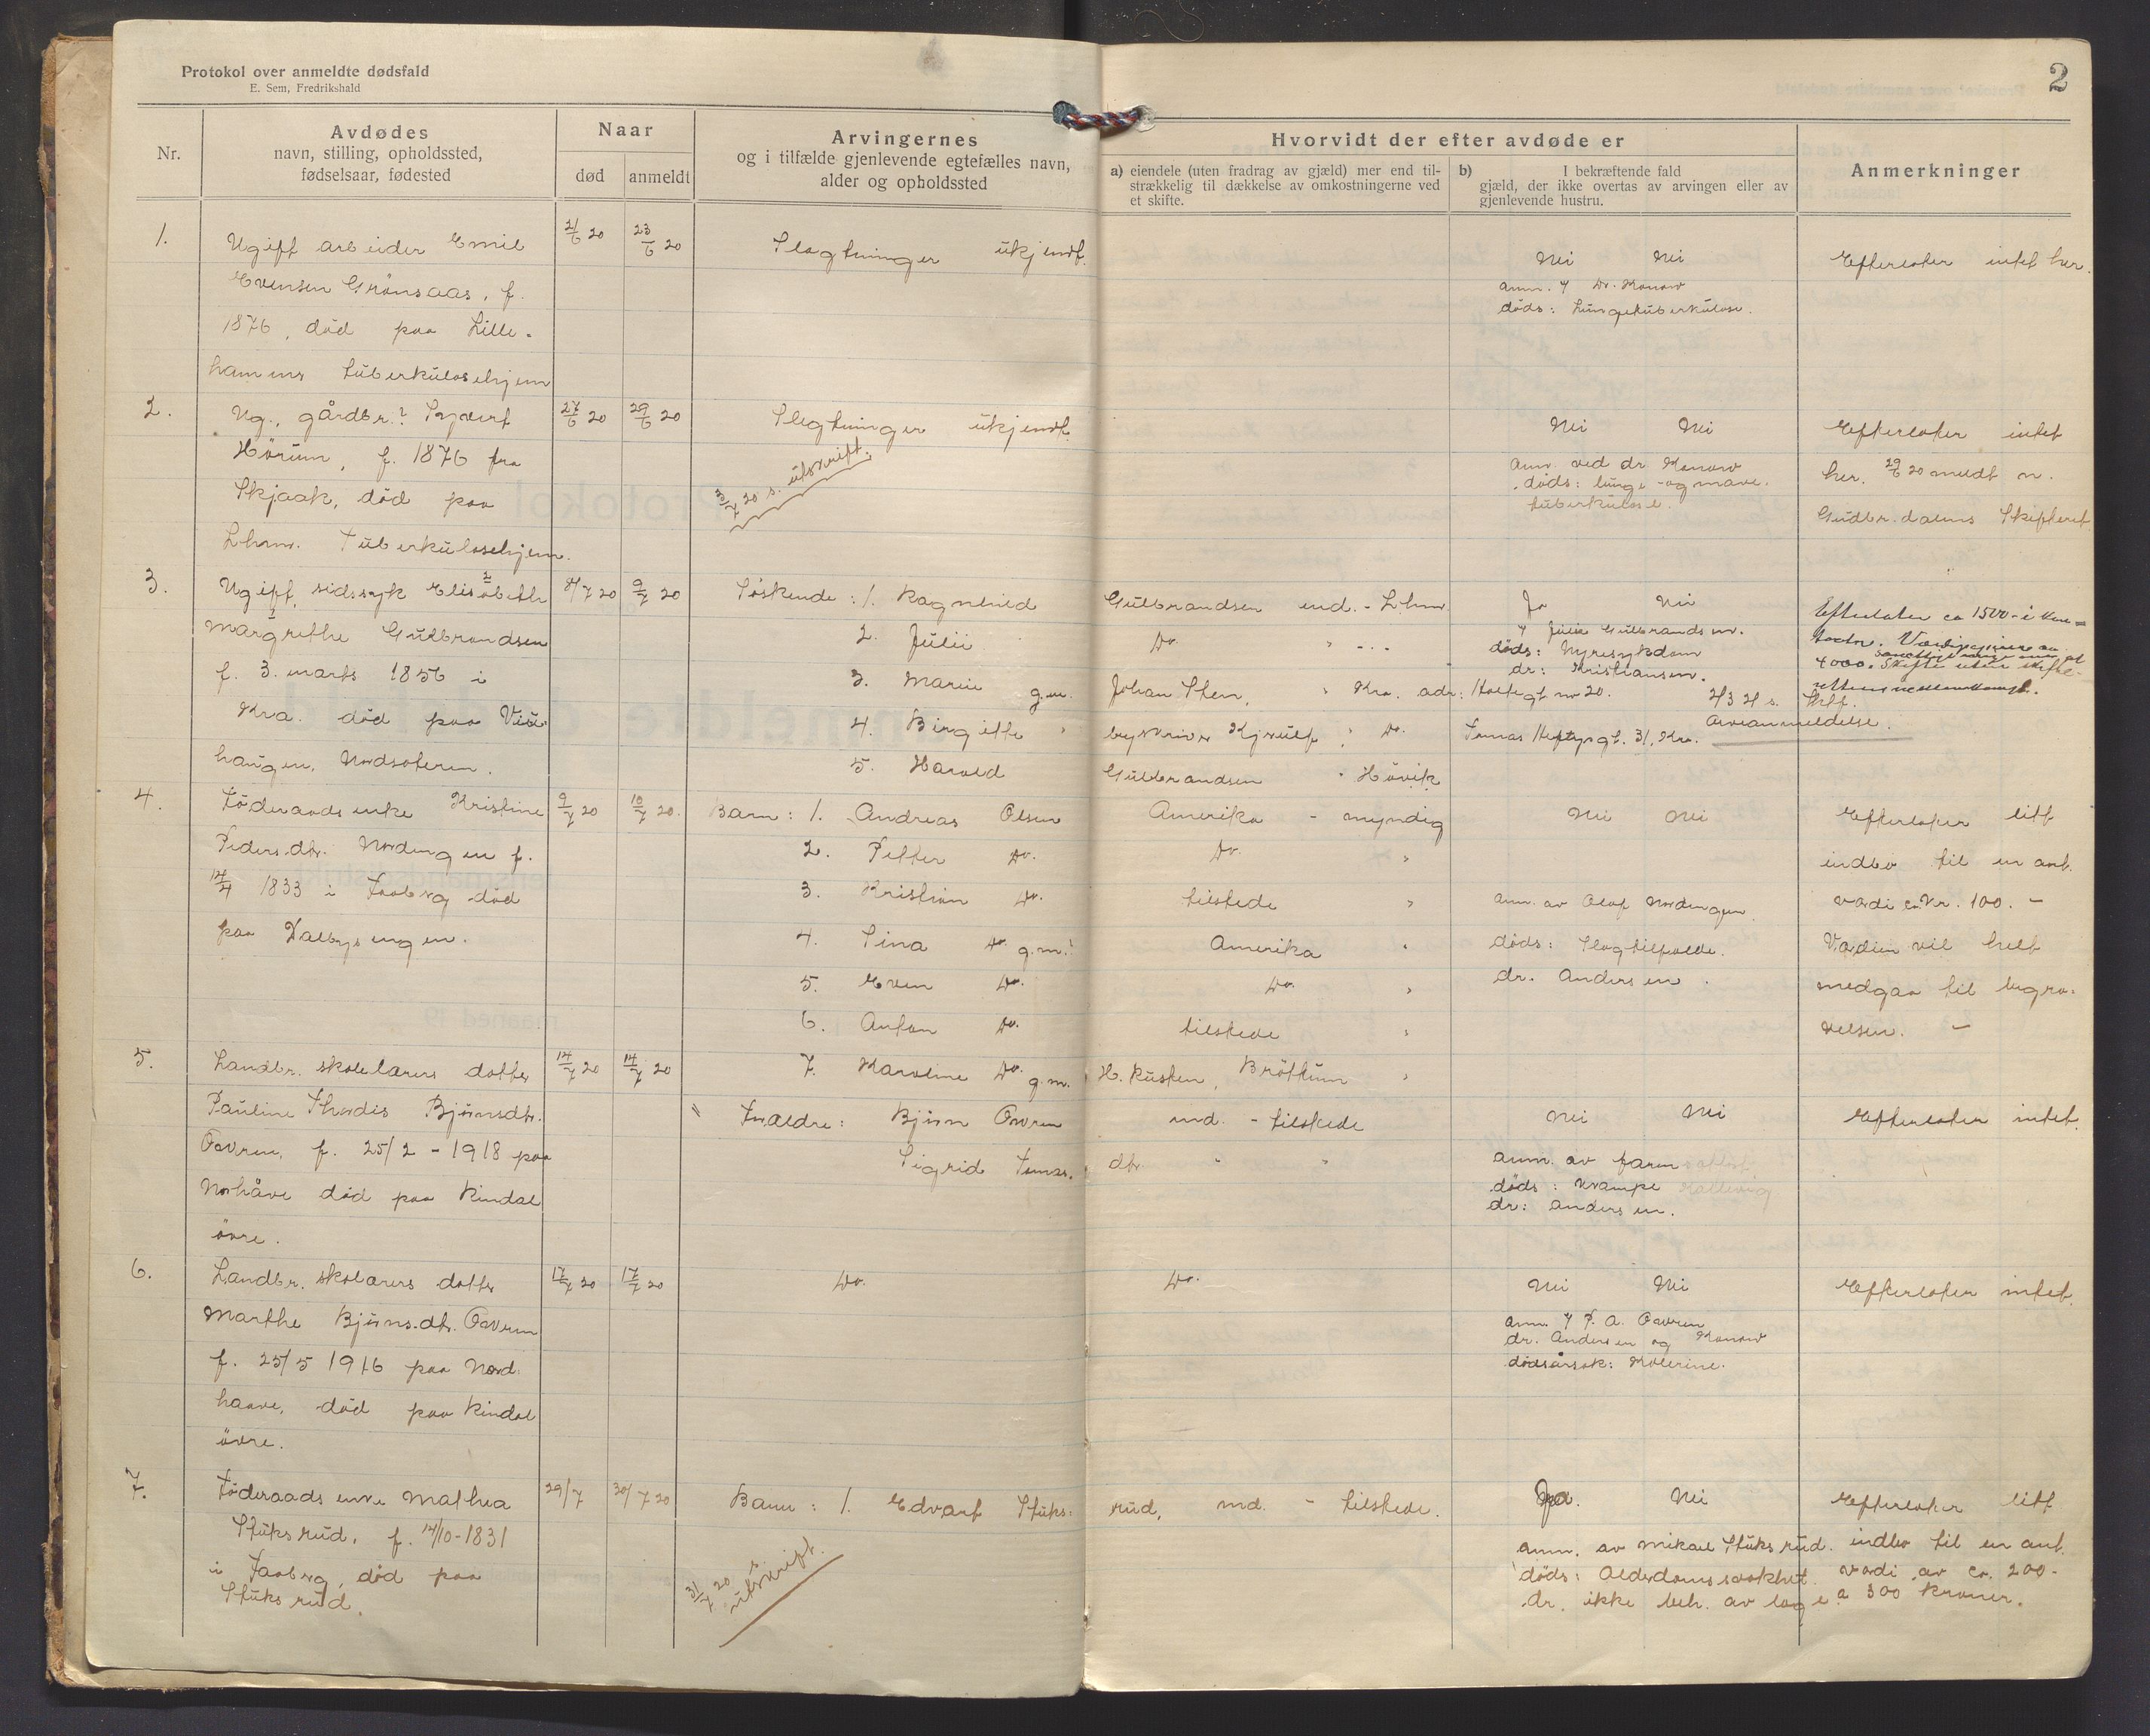 Protokol over anmeldte dødsfald
E. Sem, Fredrikshald
2
Nr.
Avdødes
navn, stilling, opholdssted,
fødselsaar, fødested
Naar
død
anmeldt
Arvingernes
og i tilfælde gjenlevende egtefælles navn,
alder og opholdssted
Hvorvidt der efter avdøde er
a) eiendele (uten fradrag av gjæld) mer end til-
strækkelig til dækkelse av omkostningerne ved
et skifte.
b) I bekræftende fald
gjæld, der ikke overtas av arvingen eller av
gjenlevende hustru.
Anmerkninger
1.
Ugift arbeider Emil
Evensen Grönsaas, f.
1876, död paa Lille-
hammers tuberkulosehjem
21/6 20
23/6 20
Slegtninger ukjendt.
Nei Nei
anm. v Dr. Konow
döds: Lungetuberkulose.
Efterlater intet her.
2.
Ug., gårdbr.? Syvert
Hörüm, f. 1876 fra
Skjaak, död paa
Lhmr. tuberkulosehjem.
27/6 20
29/6 20
Slegtninger ukjendt.
3/7 20 s. utskrift.
Nei Nei
anm. ved dr. Konow
döds: lunge- og mave.
tuberkulose.
Efterlater intet
her. 29/6 20 meldt n.
Gudbr.dalens Skifteret
3.
Ugift, sidssyk Elisabeth
Margrethe Gulbrandsen
f. 3. marts 1856 i
Kra. död paa
haugen, Nordseteren.
8/7 20
9/7 20
Söskende: 1. Ragnhild Gulbrandsen ind. - Lhmr.
2. Julie Do. " - "
3. Marie g.m. Johan Sten, " Kra. adr: Holtegt nr 20.
4. Birgitte " byskriver Kjerulf, " Do. Tomas Heftyesgt. 31, Kra.
5. Harald Gulbrandsen " Hövik
Ja Nei
v Julie Gulbrandsen.
döds: Nyresykdom
dr: Kristiansen.
Efterlater ca 1500- i
4000. Skifte uten skifte-
rettens mellemkomst.
arveanmeldelse.
4.
Föderaadsenke Kristine
Peders.dtr. Nordengen f.
14/4 1833 i Faaberg död
paa Dalbysengen.
9/7 20
10/7 20.
Barn: 1. Andreas Olsen Amerika - myndig
2. Petter Do. Do. "
3. Kristian Do. tilstede "
4. Sina Do. g.m.? Amerika "
5. Even Do. Do. "
6. Anton Do. tilstede "
7. Karoline Do. g.m. H. Rusten, Bröttum "
Nei Nei
anm. av Olaf Nordengen.
döds: Slagtilfælde.
dr. Andersen.
Efterlater litt
indbo til en ant.
værdi ca. Kr. 100. -
Værdien vil helt
medgaa til begra-
velsen. -
5.
Landbr. skolelærers datter
Pauline Thordis Björnsdtr.
Oavren, f. 25/2 - 1918 paa
Norhåve död paa Rindal
övre.
14/7 20
14/7 20
Forældre: Björn Oavren md. - tilstede
Sigrid Tomas. dtr. " "
Nei Nei
anm. av faren
döds: Krampe
dr: Andersen.
Efterlater intet.
6.
Landbr. skolærers datter
Marthe Björns.dtr. Oavren
f. 25/5 1916 paa Nord-
haave, död paa Rindal
övre.
17/7 20
17/7 20
Do. Do.
Nei Nei
anm. v P. A. Oavren
dr. Andersen og Konow
dödsårsak: Kolerine.
Efterlater intet.
7.
Föderaads enke Mathea
Stuksrud, f. 14/10-1831
i Faaberg, död paa
Stuksrud.
29/7
30/7 20
Barn: 1. Edvart Stuks- rud, md. - tilstede.
31/7 20 s.
utskrift.
Ja. Nei
anm. av Mikael Stuksrud.
döds: Alderdomssvakhet.
dr. ikke beh. av læge
Efterlater litt
indbo til en ant.
værdi av ca. 200-
a 300 kroner.